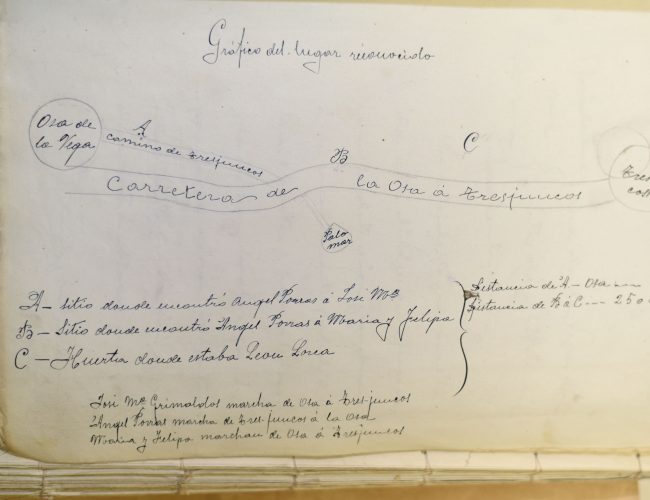 Gráfico del lugar reconocido
Osa de
la Vega
A
camino de Tresjuncos
B
C
Carretera de la Osa á Tresjuncos
Palo
mar
A - sitio donde encontró Angel Porras á José Mª
B - Sitio donde encontró Angel Porras á Maria y Felipa
C - Huerta donde estaba Leon Lorca
Distancia de A - Osa
Distancia de B á C --- 250
José Mª Grimaldos marcha de Osa á Tresjuncos
Angel Porras marcha de Tresjuncos á la Osa
Maria y Felipa marchan de Osa á Tresjuncos